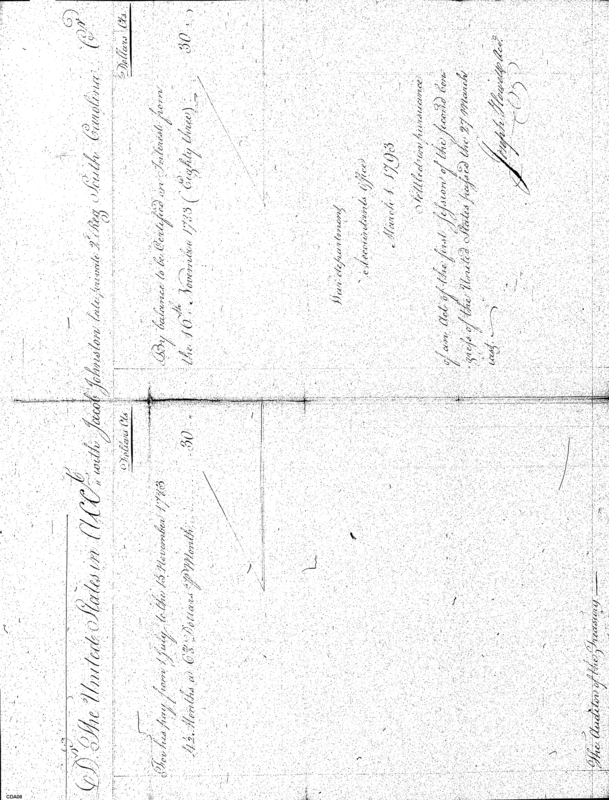 Dr The United States in Acct with Jacob Johnston late private 2d Reg South Carolina. Cr
Dollars Cts
For his pay from 1 July to the 15 November 1783
4½ Months a 6⅔ Dollars p Month 30 "
Dollars Cts
By balance to be Certified on Interest from
the 16th November 1783 (Eighty three) 30 "
War department
Accountants Office
March 1 1793
Settled in pursuance
of an Act of the first session of the second Con
gress of the United States passed the 27 March
last.
Joseph Howell Act
The Auditor of the Treasury
CDA08